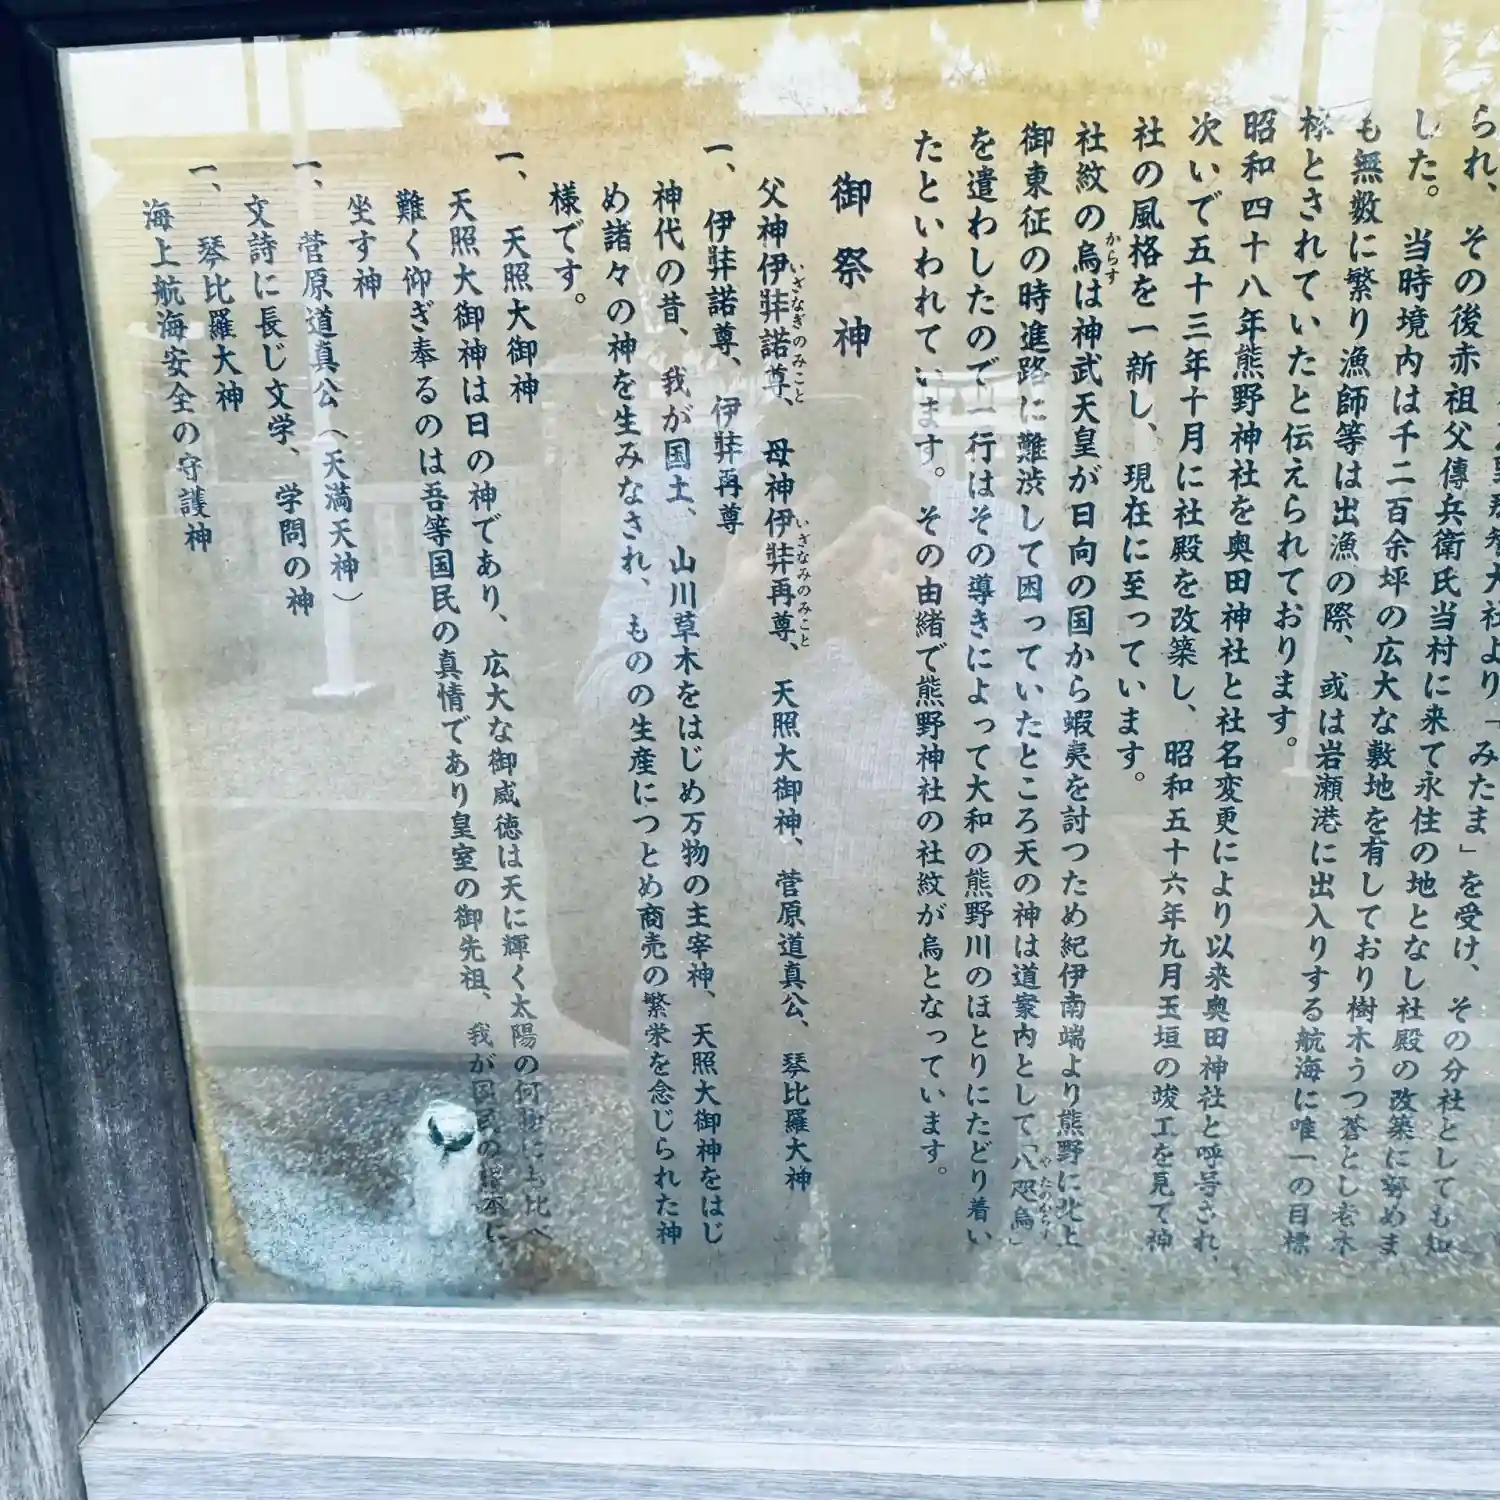 られ、その後赤祖父傳兵衛氏当村に来て永住の地となし社殿の改築に努めま
した。当時境内は千二百余坪の広大な敷地を有しており樹木うつ蒼とし老木
も無数に繁り漁師等は出漁の際、或は岩瀬港に出入りする航海に唯一の目標
標とされていたと伝えられております。
昭和四十八年熊野神社を奥田神社と社名変更により以来奥田神社と呼号され、
次いで五十三年十月に社殿を改築し、昭和五十六年九月玉垣の竣工を見て神
社の風格を一新し、現在に至っています。
社紋の烏は神武天皇が日向の国から蝦夷を討つため紀伊南端より熊野に北上
からす
御東征の時進路に難渋して困っていたところ天の神は道案内として「八咫烏」
やたのからす
を遣わしたので一行はその導きによって大和の熊野川のほとりにたどり着い
たといわれています。その由緒で熊野神社の社紋が烏となっています。
御祭神
父神伊弉諾尊、母神伊弉再尊、天照大御神、菅原道真公、琴比羅大神
いざなぎのみこと いざなみのみこと
一、伊弉諾尊、伊弉再尊
神代の昔、我が国土、山川草木をはじめ万物の主宰神、天照大御神をはじ
め諸々の神を生みなされ、ものの生産につとめ商売の繁栄を念じられた神
様です。
一、天照大御神
天照大御神は日の神であり、広大な御威徳は天に輝く太陽の何物にも比べ
難く仰ぎ奉るのは吾等国民の真情であり皇室の御先祖、我が国の
坐す神
一、菅原道真公(天満天神)
文詩に長じ文学、学問の神
一、琴比羅大神
海上航海安全の守護神